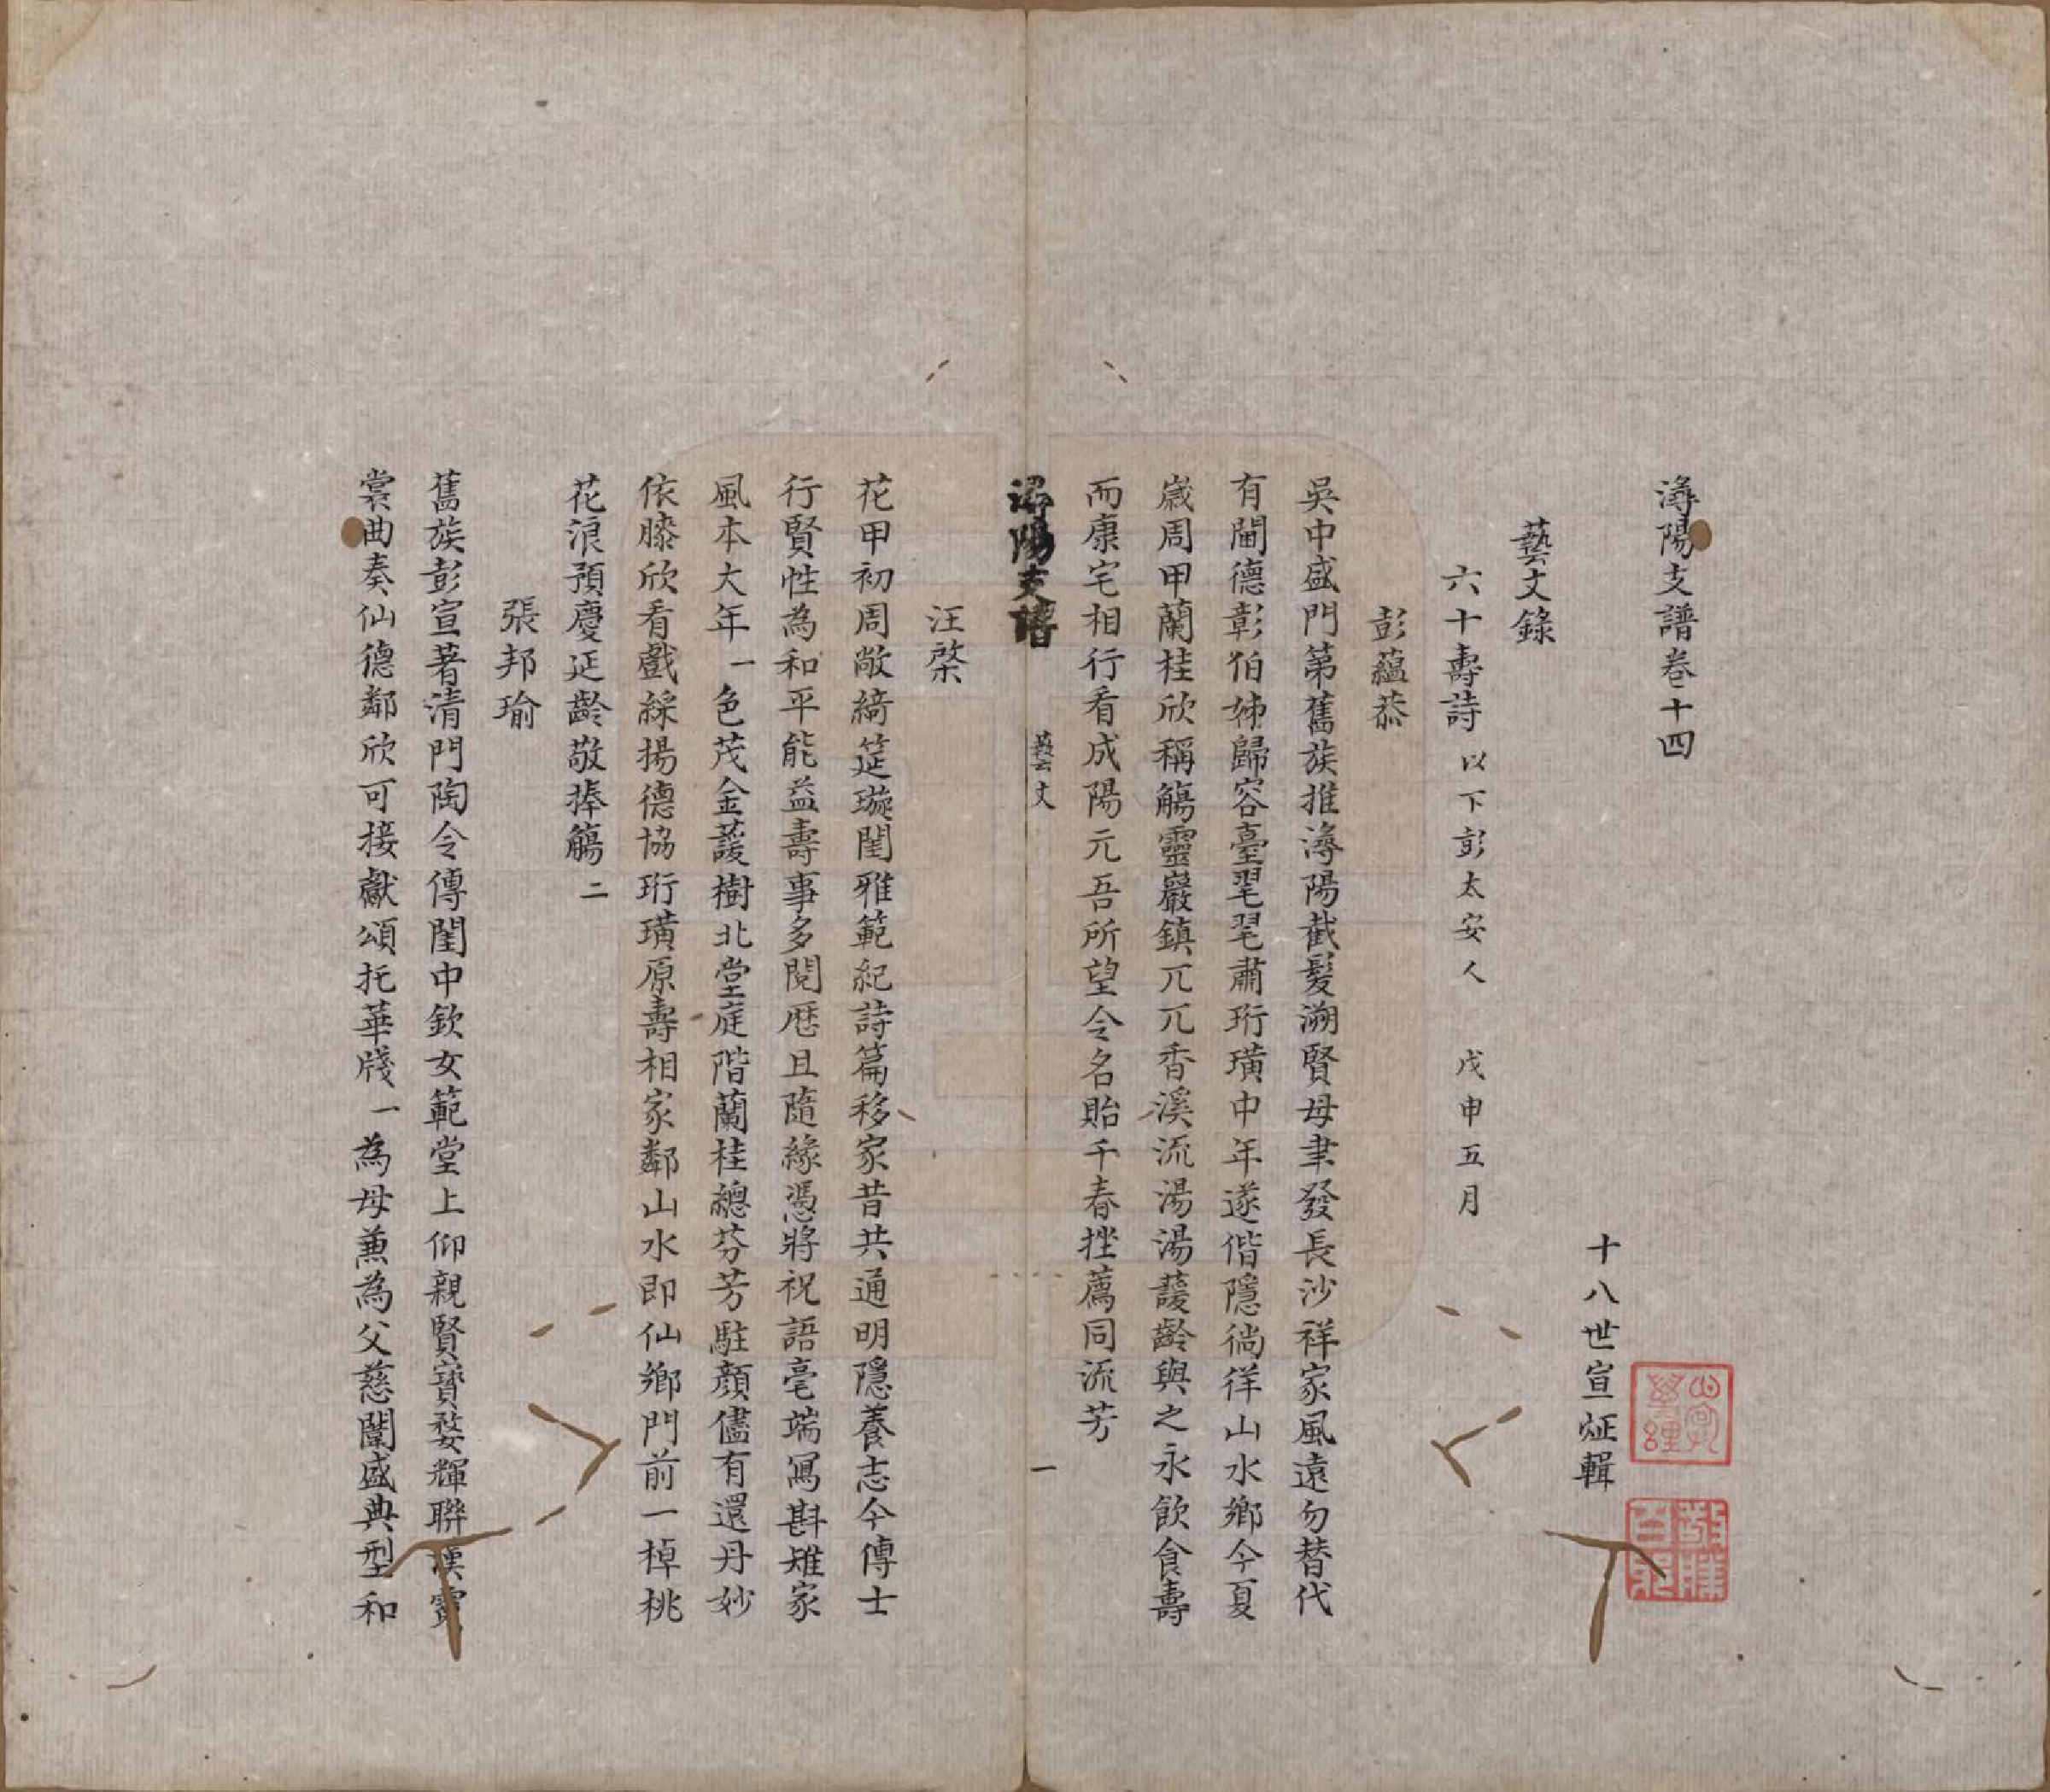 潯陽支譜卷十四
十八世宣炡輯
藝文錄
六十壽詩 以下彭太安人 戊申五月
彭蘊恭
吳中盛門第舊族推潯陽截髮溯賢母聿發長沙祥家風遠勿替代
有閫德彰伯姊歸容臺翟翟肅珩璜中年遂偕隱徜徉山水鄉今夏
歲周甲蘭桂欣稱觴靈巖鎮兀兀香溪流湯湯護齡與之永飲食壽
而康宅相行看成陽元吾所望令名貽千春挫薦同流芳
潯陽支譜 藝文 一
汪棨
花甲初周敞綺筵璇閨雅範紀詩篇移家昔共通明隱養志今傳士
行賢性為和平能益壽事多閱歷且隨緣憑將祝語毫端寫斟雉家
風本大年一色茂金萲樹北堂庭階蘭桂總芬芳駐顏儘有還丹妙
依膝欣看戲綵揚德協珩璜原壽相家鄰山水即仙鄉門前一棹桃
花浪預慶延齡敬捧觴二
張邦瑜
舊族彭宣著清門陶令傳閨中欽女範堂上仰親賢寶婺輝聯漢霓
裳曲奏仙德鄰欣可接獻頌托華牋一為母兼為父慈闈盛典型和